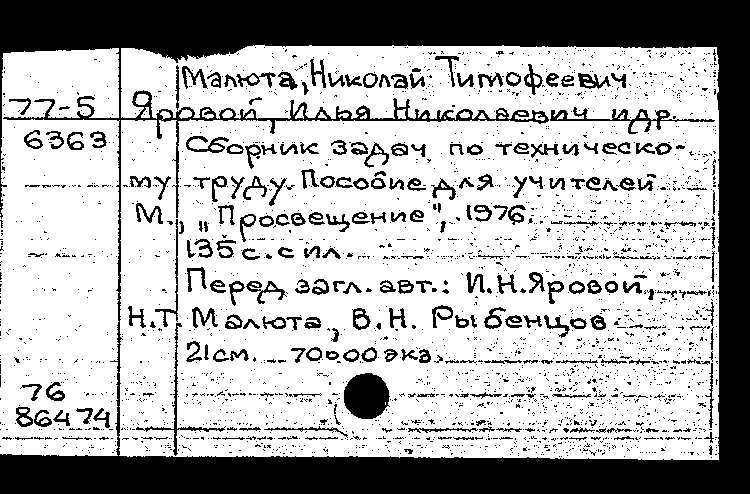 Малюта, Николай Тимофеевич
77-5 Яровой, Илья Николаевич и др.
6363 Сборник задач по техническо-
му труду. Пособие для учителей
М., „Просвещение", 1976.
135 с. с ил.
Перед загл. авт.: И.Н.Яровой,
Н.Т. Малюта, В.Н. Рыбенцов.
21 см. 70000 экз.
76
86474